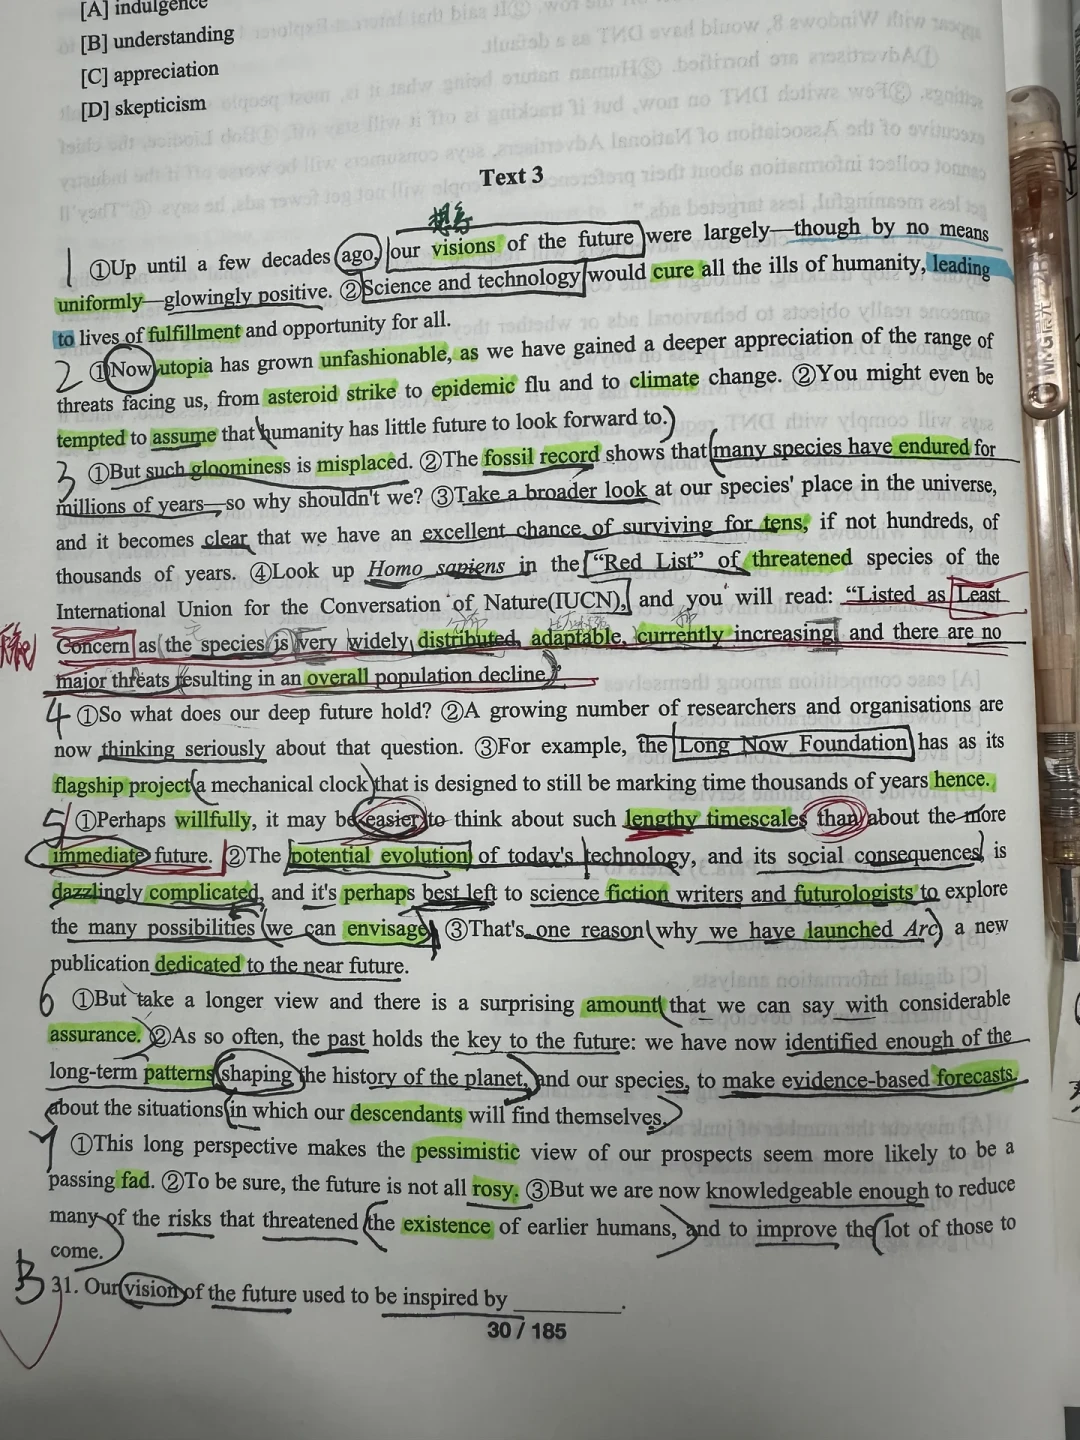 [A] indulgence
[B] understanding
[C] appreciation
[D] skepticism
Text 3
想象
1 ①Up until a few decades ago, our visions of the future were largely—though by no means
uniformly—glowingly positive. ②Science and technology would cure all the ills of humanity, leading
to lives of fulfillment and opportunity for all.
2 ①Now utopia has grown unfashionable, as we have gained a deeper appreciation of the range of
threats facing us, from asteroid strike to epidemic flu and to climate change. ②You might even be
tempted to assume that humanity has little future to look forward to.
3 ①But such gloominess is misplaced. ②The fossil record shows that many species have endured for
millions of years—so why shouldn't we? ③Take a broader look at our species' place in the universe,
and it becomes clear that we have an excellent chance of surviving for tens, if not hundreds, of
thousands of years. ④Look up Homo sapiens in the "Red List" of threatened species of the
International Union for the Conversation of Nature(IUCN), and you will read: "Listed as Least
Concern as the species is very widely distributed, adaptable, currently increasing, and there are no
major threats resulting in an overall population decline."
4 ①So what does our deep future hold? ②A growing number of researchers and organisations are
now thinking seriously about that question. ③For example, the Long Now Foundation has as its
flagship project a mechanical clock that is designed to still be marking time thousands of years hence.
5 ①Perhaps willfully, it may be easier to think about such lengthy timescales than about the more
immediate future. ②The potential evolution of today's technology, and its social consequences, is
dazzlingly complicated, and it's perhaps best left to science fiction writers and futurologists to explore
the many possibilities we can envisage. ③That's one reason why we have launched Arc, a new
publication dedicated to the near future.
6 ①But take a longer view and there is a surprising amount that we can say with considerable
assurance. ②As so often, the past holds the key to the future: we have now identified enough of the
long-term patterns shaping the history of the planet, and our species, to make evidence-based forecasts
about the situations in which our descendants will find themselves.
7 ①This long perspective makes the pessimistic view of our prospects seem more likely to be a
passing fad. ②To be sure, the future is not all rosy. ③But we are now knowledgeable enough to reduce
many of the risks that threatened the existence of earlier humans, and to improve the lot of those to
come.
B 31. Our vision of the future used to be inspired by ________.
30 / 185